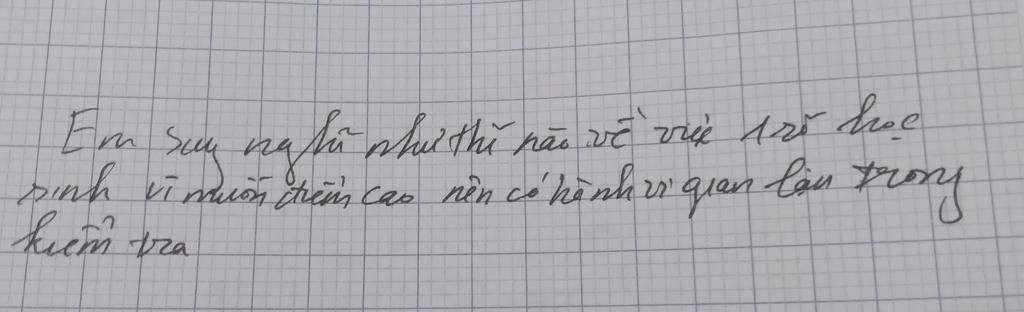 Em suy nghĩ như thế nào về việc 1 số học
sinh vì muốn điểm cao nên có hành vi gian lận trong
kiểm tra